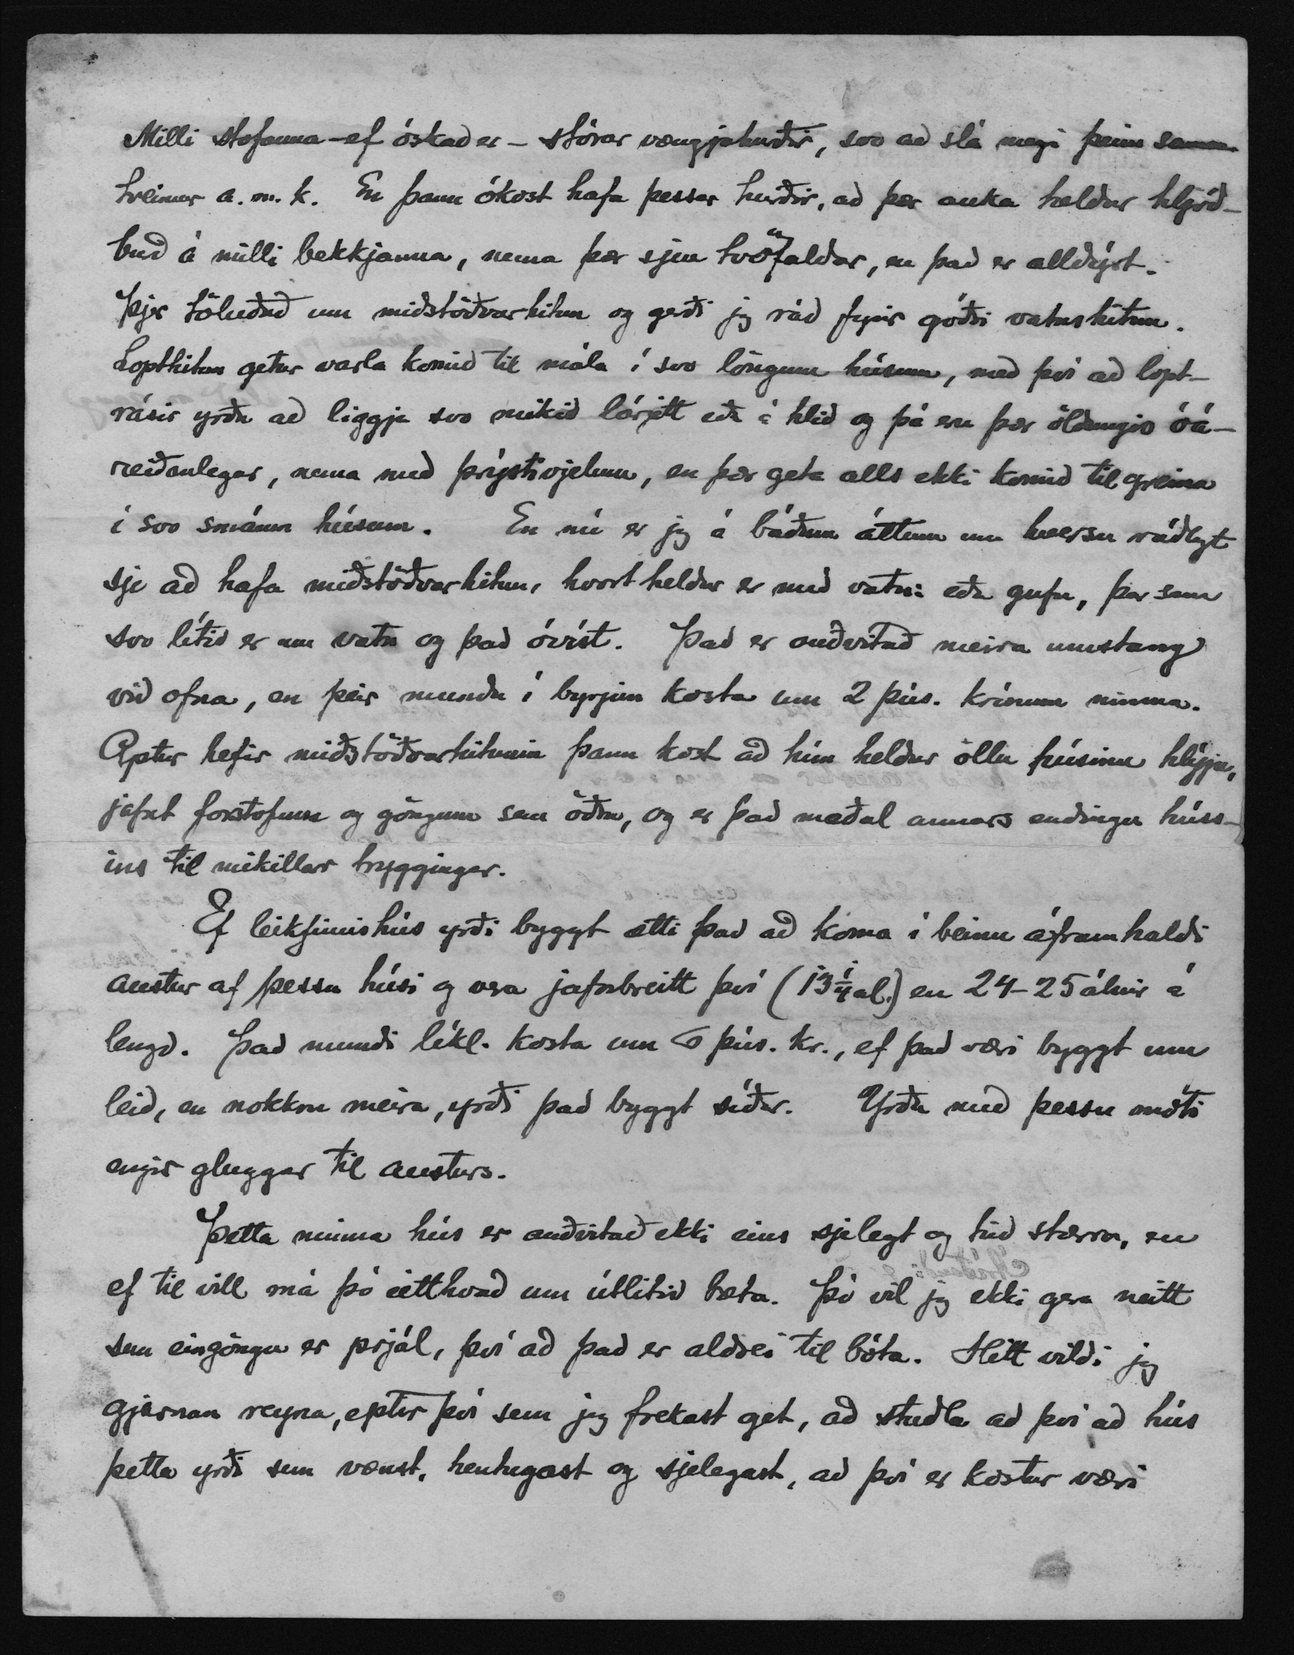 Milli stofanna – ef óskað er – stórar vængjahurðir, svo að slá megi þeim saman
tveimur a. m. k. En þann ókost hafa þessar hurðir, að þær auka heldur hljóð-
burð á milli bekkjanna, nema þær sjeu tvöfaldar, en það er alldýrt.
Þjer töluðuð um miðstöðvarhitun og gerði jeg ráð fyrir góðri vatnshitun.
Lopthitun getur varla komið til mála í svo löngum húsum, með því að lopt-
rásir yrðu að liggja svo mikið lárjett eða á hlið og þá eru þær öldungis óá-
reiðanlegar, nema með þrýstivjelum, en þær geta alls ekki komið til greina
í svo smáum húsum. En nú er jeg á báðum áttum um hversu ráðlegt
sje að hafa miðstöðvarhitun, hvort heldur er með vatni eða gufu, þar sem
svo lítið er um vatn og það óvíst. Það er auðvitað meira umstang
við ofna, en þeir mundu í byrjun kosta um 2 þús. krónum minna.
Aptur hefir miðstöðvarhitunin þann kost að hún heldur öllu húsinu hlýju,
jafnt forstofum og göngum sem öðru, og er það meðal annars endingu húss-
ins til mikillar tryggingar.
Ef leikfimishús yrði byggt ætti það að koma í beinu áframhaldi
austur af þessu húsi og vera jafnbreitt því (13 1/4 al.) en 24–25 álnir á
lengd. Það mundi líkl. kosta um 6 þús. kr., ef það væri byggt um
leið, en nokkru meira, yrði það byggt síðar. Yrðu með þessu móti
engir gluggar til austurs.
Þetta minna hús er auðvitað ekki eins sjelegt og hið stærra, en
ef til vill má þó eitthvað um útlitið bæta. Þó vil jeg ekki gera neitt
sem eingöngu er prjál, því að það er aldrei til bóta. Hitt vildi jeg
gjarnan reyna, eptir því sem jeg frekast get, að stuðla að því að hús
þetta yrði sem vænst, hentugast og sjelegast, að því er kostur væri